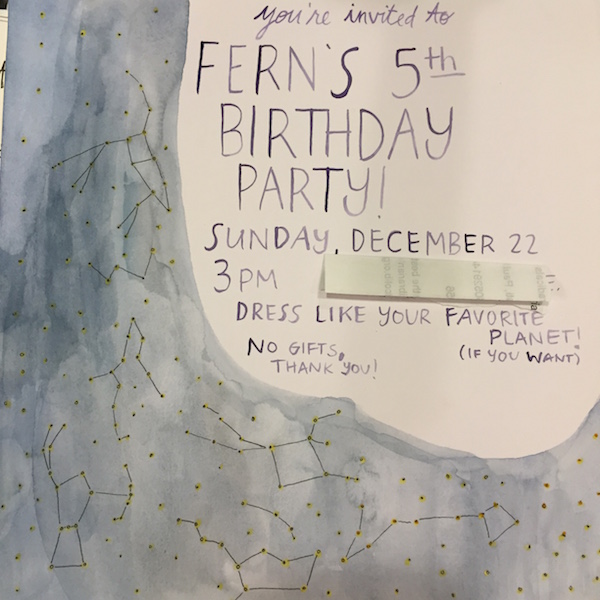 you're invited to
FERN'S 5th
BIRTHDAY
PARTY!
SUNDAY, DECEMBER 22
3 PM
DRESS LIKE YOUR FAVORITE
PLANET!
(IF YOU WANT)
NO GIFTS,
THANK YOU!